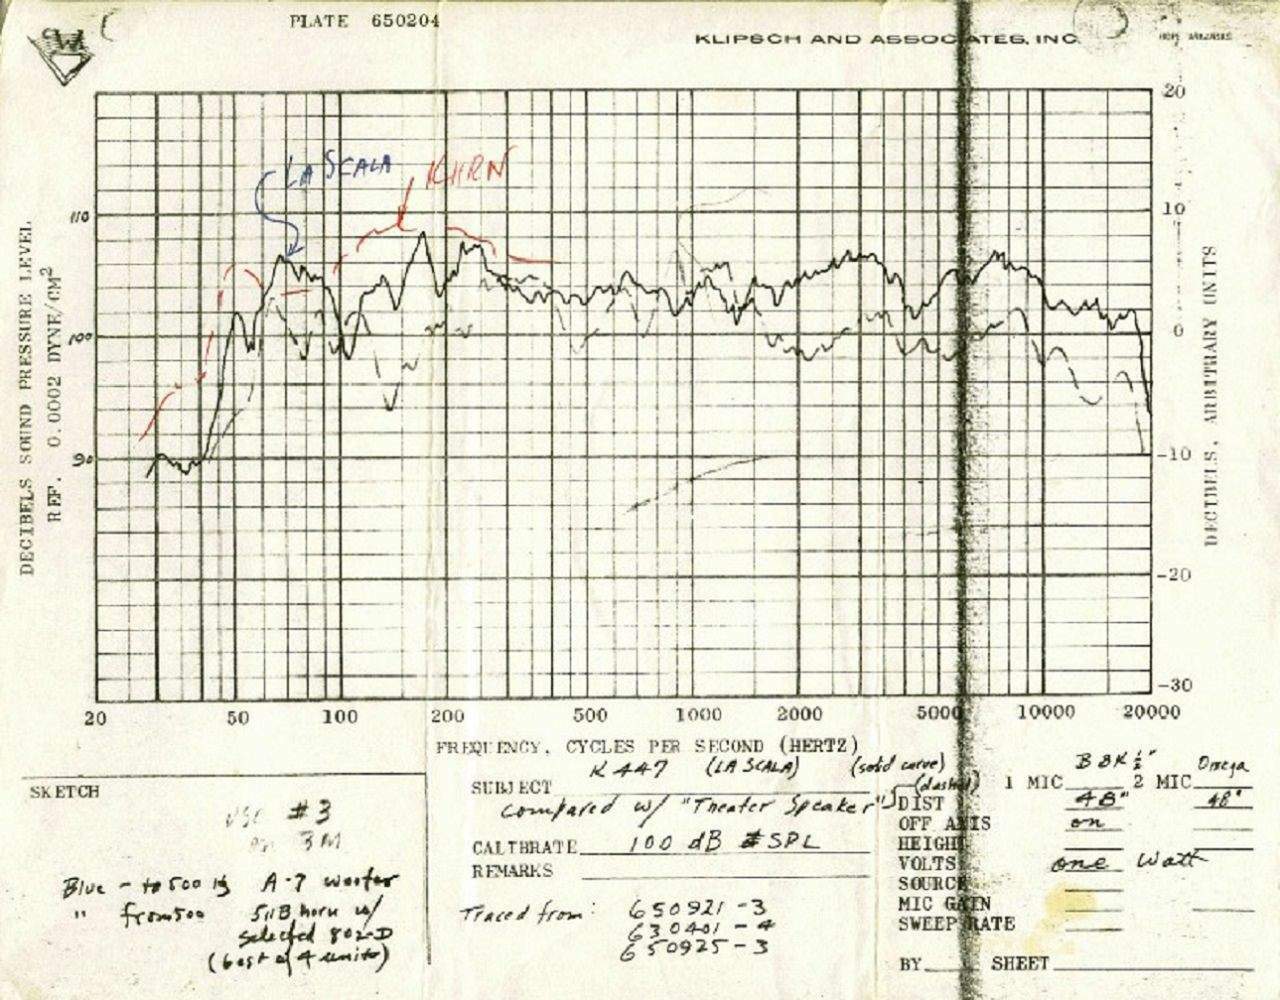 PLATE 650204
KLIPSCH AND ASSOCIATES, INC.
HOPE ARKANSAS
W
LA SCALA
KHRN
20
10
0
-10
-20
-30
110
100
90
DECIBELS SOUND PRESSURE LEVEL
REF. 0.0002 DYNE/CM²
DECIBELS, ARBITRARY UNITS
20 50 100 200 500 1000 2000 5000 10000 20000
FREQUENCY, CYCLES PER SECOND (HERTZ)
SKETCH
#3
3M
Blue - to 500 A-7 woofer
" from 500 511B horn w/
selected 802-D
(best of 4 units)
SUBJECT K 447 (LA SCALA) (solid curve)
compared w/ "Theater Speaker" (dashed)
CALIBRATE 100 dB SPL
REMARKS
Traced from: 650921-3
630401-4
650925-3
1 MIC B&K ½" 2 MIC Omega
DIST 48" 48"
OFF AXIS on
HEIGHT
VOLTS one Watt
SOURCE
MIC GAIN
SWEEP RATE
BY SHEET